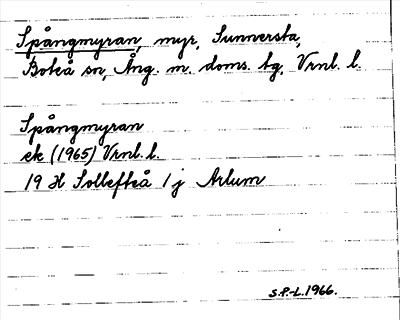 Spångmyran, myr, Sunnersta,
Boteå sn, Ång. m. doms. tg, Vrnl. l.
Spångmyran
ek (1965) Vrnl. l.
19 H Sollefteå 1 j Arlum
S.P.-L. 1966.